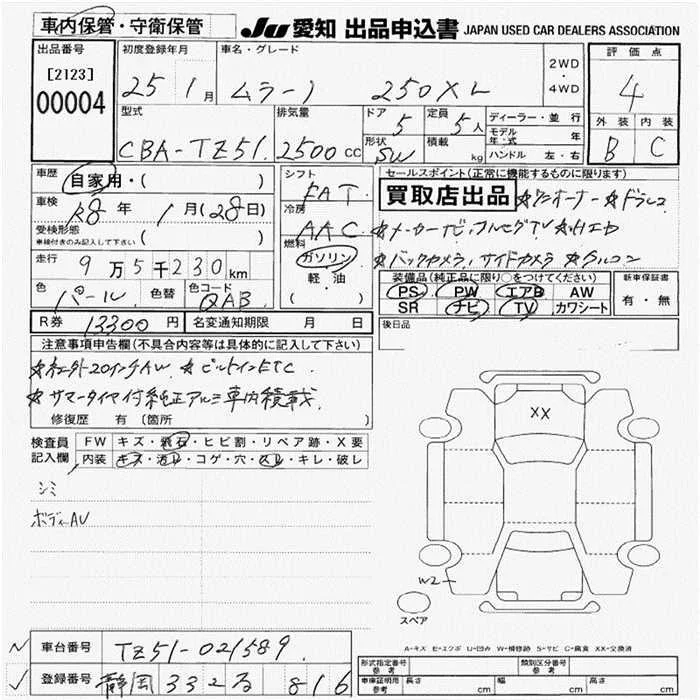 車内保管・守衛保管
JU 愛知 出品申込書 JAPAN USED CAR DEALERS ASSOCIATION
出品番号 初度登録年月 車名・グレード 2WD・4WD 評価点
[2123]
00004 25 1月 ムラーノ 250XL 4
型式 排気量 ドア 5 定員 5人 ディーラー・並行 外装 内装
モデル年式 年
CBA-TZ51 2500cc 形状 SW 積載 kg ハンドル 左・右 B C
車歴 自家用・( ) シフト FAT セールスポイント(正常に機能するものに限ります)
車検 28年 1月(28日) 冷房 AAC 買取店出品 ☆ワンオーナー ☆ドラレコ
受検形態 ( )
車検付きのみ記入して下さい
☆メーカーナビ,フルセグTV
走行 9万5千230km 燃料 ガソリン・軽油 ( ) ☆バックカメラ,サイドカメラ ☆クルコン
色 パール 色替 色コード QAB
装備品(純正品に限り○をつけてください) 新車保証書
PS PW エアB AW 有・無
SR ナビ TV カワシート
R券 13300円 名変通知期限 月 日 後日品
注意事項申告欄(不具合内容等は具体的に記入して下さい)
☆社外20インチAW ☆ビルトインETC
☆サマータイヤ付純正アルミ車内積載
修復歴 有(箇所 )
XX
検査員記入欄 FW キズ・飛石・ヒビ割・リペア跡・X要
内装 キズ・汚れ・コゲ・穴・スレ・キレ・破レ
シミ
ボディAU
W2
スペア
A-キズ E-エクボ U-凹み W-補修跡 S-サビ C-腐食 XX-交換済
車台番号 TZ51-021589
登録番号 静岡 332 る 816
形式指定番号 参考 類別区分番号 参考
車庫証明用 参考 長さ cm 幅 cm 高さ cm